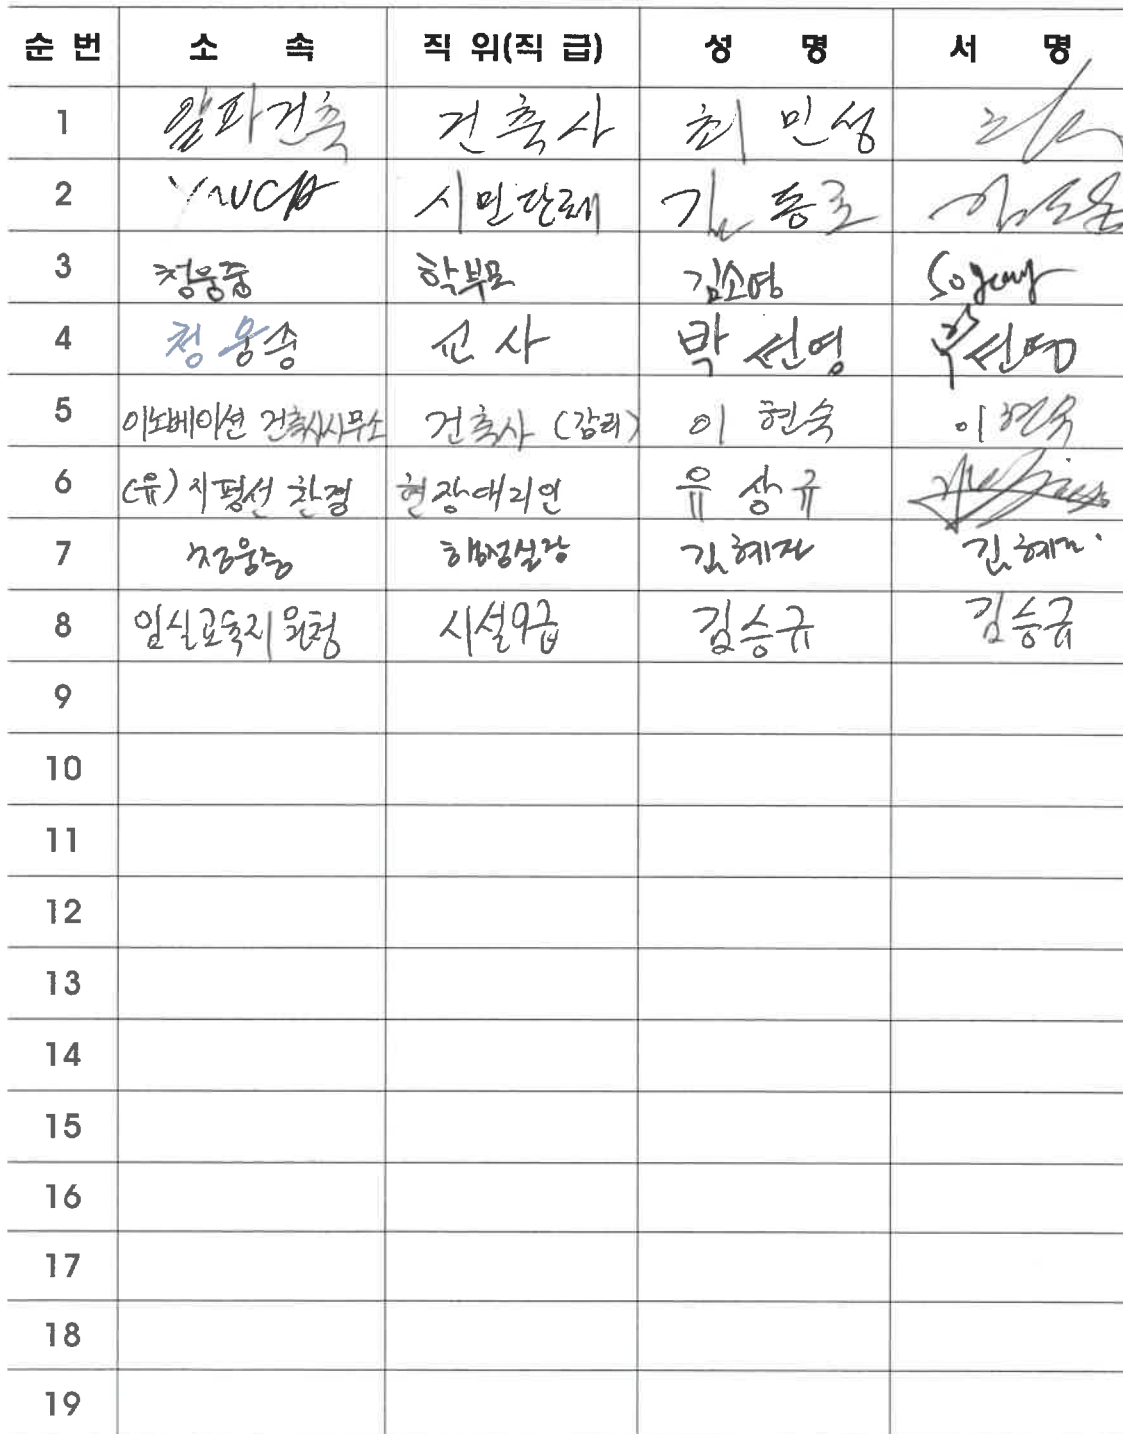 순 번 소 속 직 위(직 급) 성 명 서 명
1 알파건축 건축사 최 민성
2 YWCA 시민단체 김
3 청웅중 학부모 김소영 Soyoung
4 청웅중 교사 박선영 박선영
5 이노베이션 건축사사무소 건축사 (감리) 이현숙 이현숙
6 (유)지평선 환경 현장대리인 유상규
7 청웅중 행정실장 김혜진 김혜진
8 임실교육지원청 시설9급 김승규 김승규
9
10
11
12
13
14
15
16
17
18
19